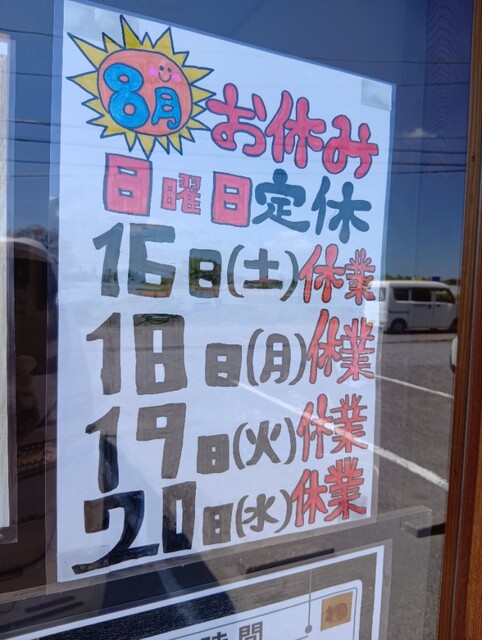 8月
お休み
日曜日定休
16日(土)休業
18日(月)休業
19日(火)休業
20日(水)休業
時間